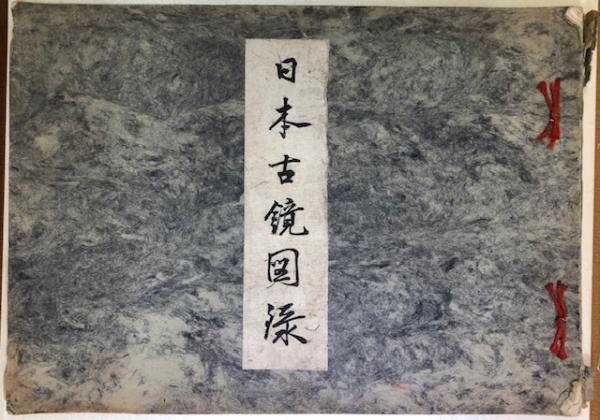 日本古鏡図録